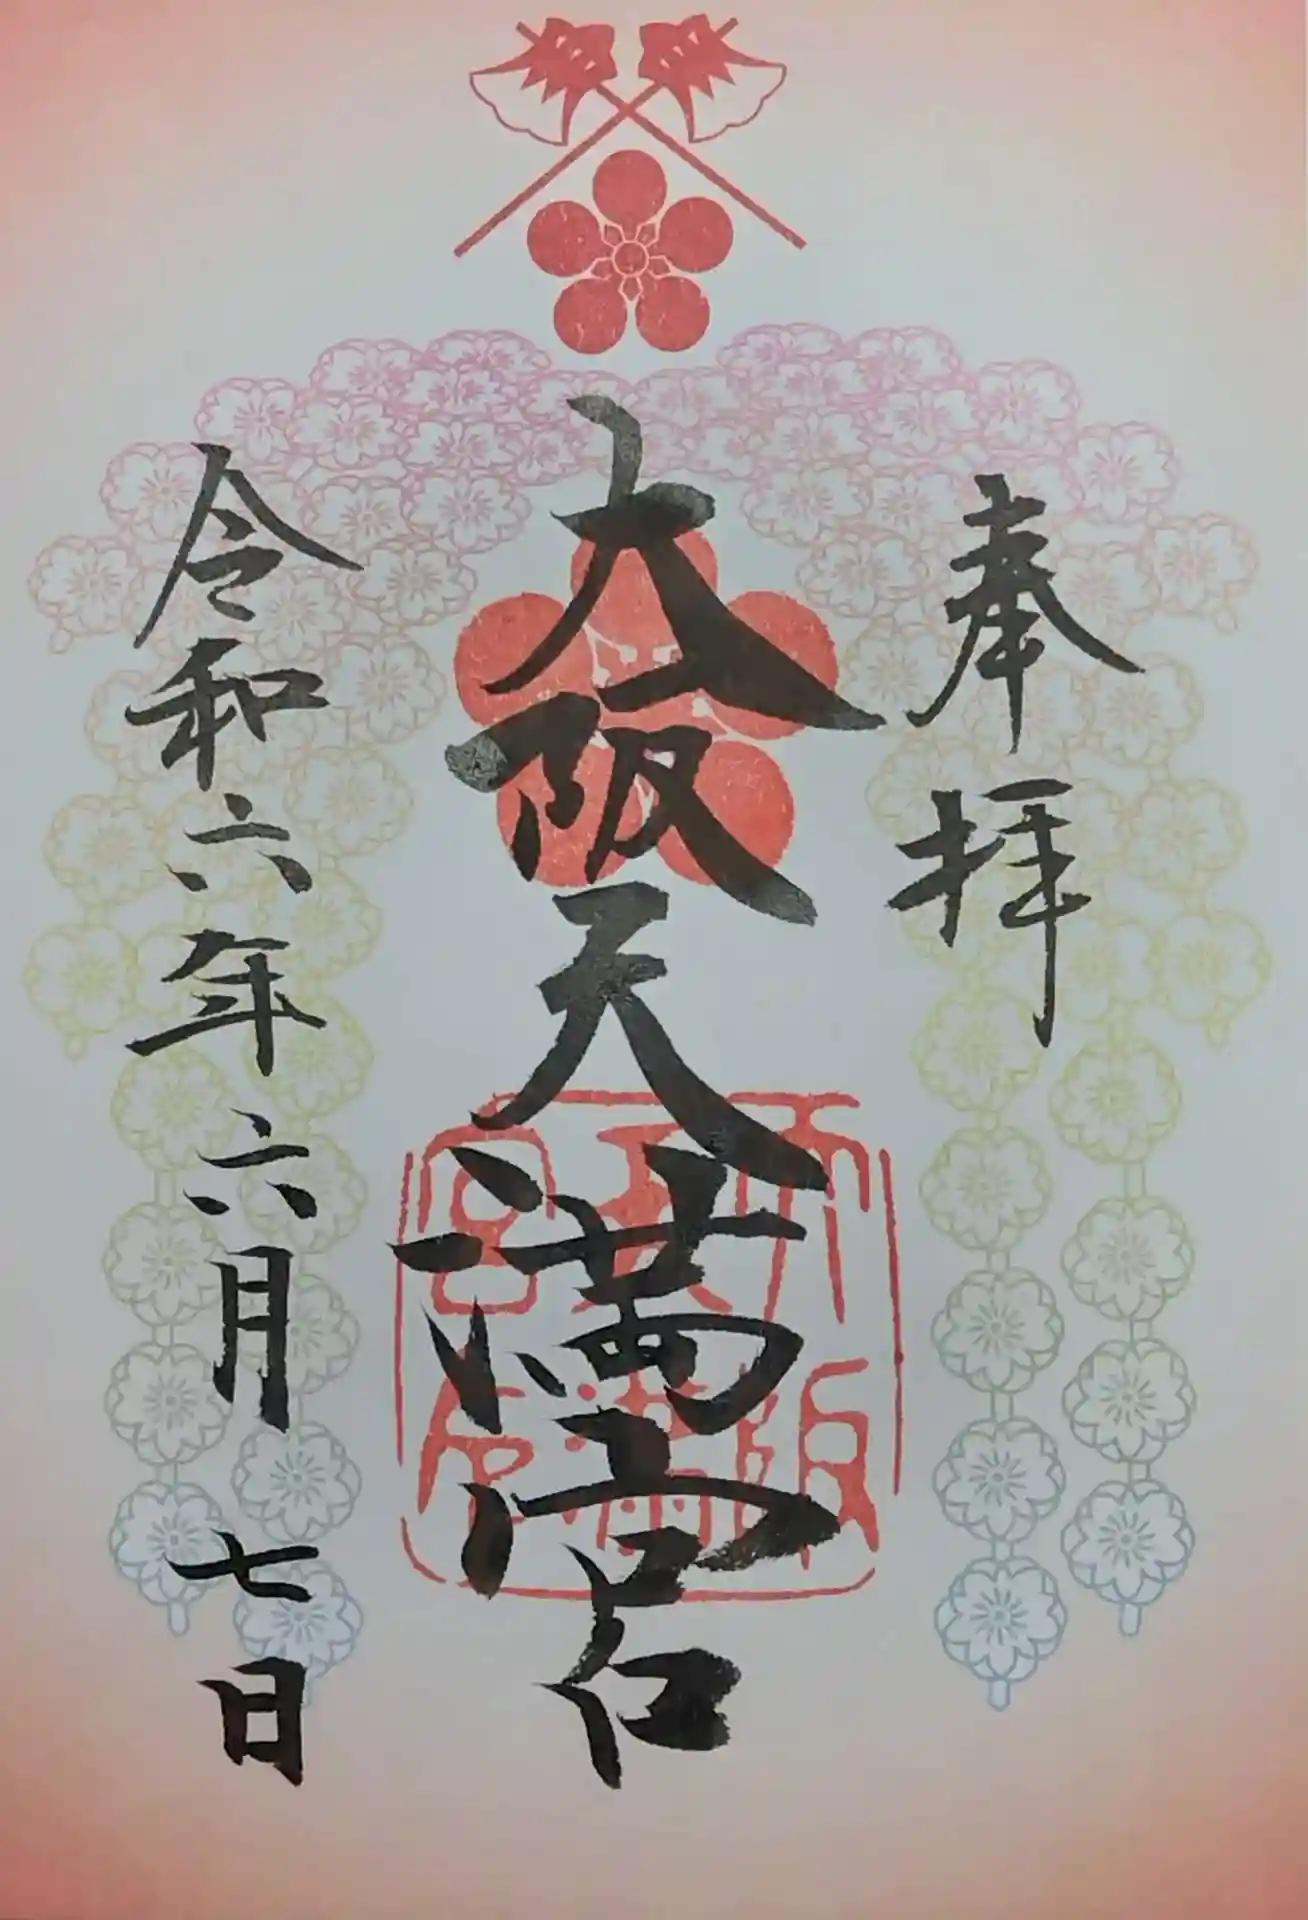 奉拝
大阪天満宮
令和六年六月七日
大阪
天満
宮印